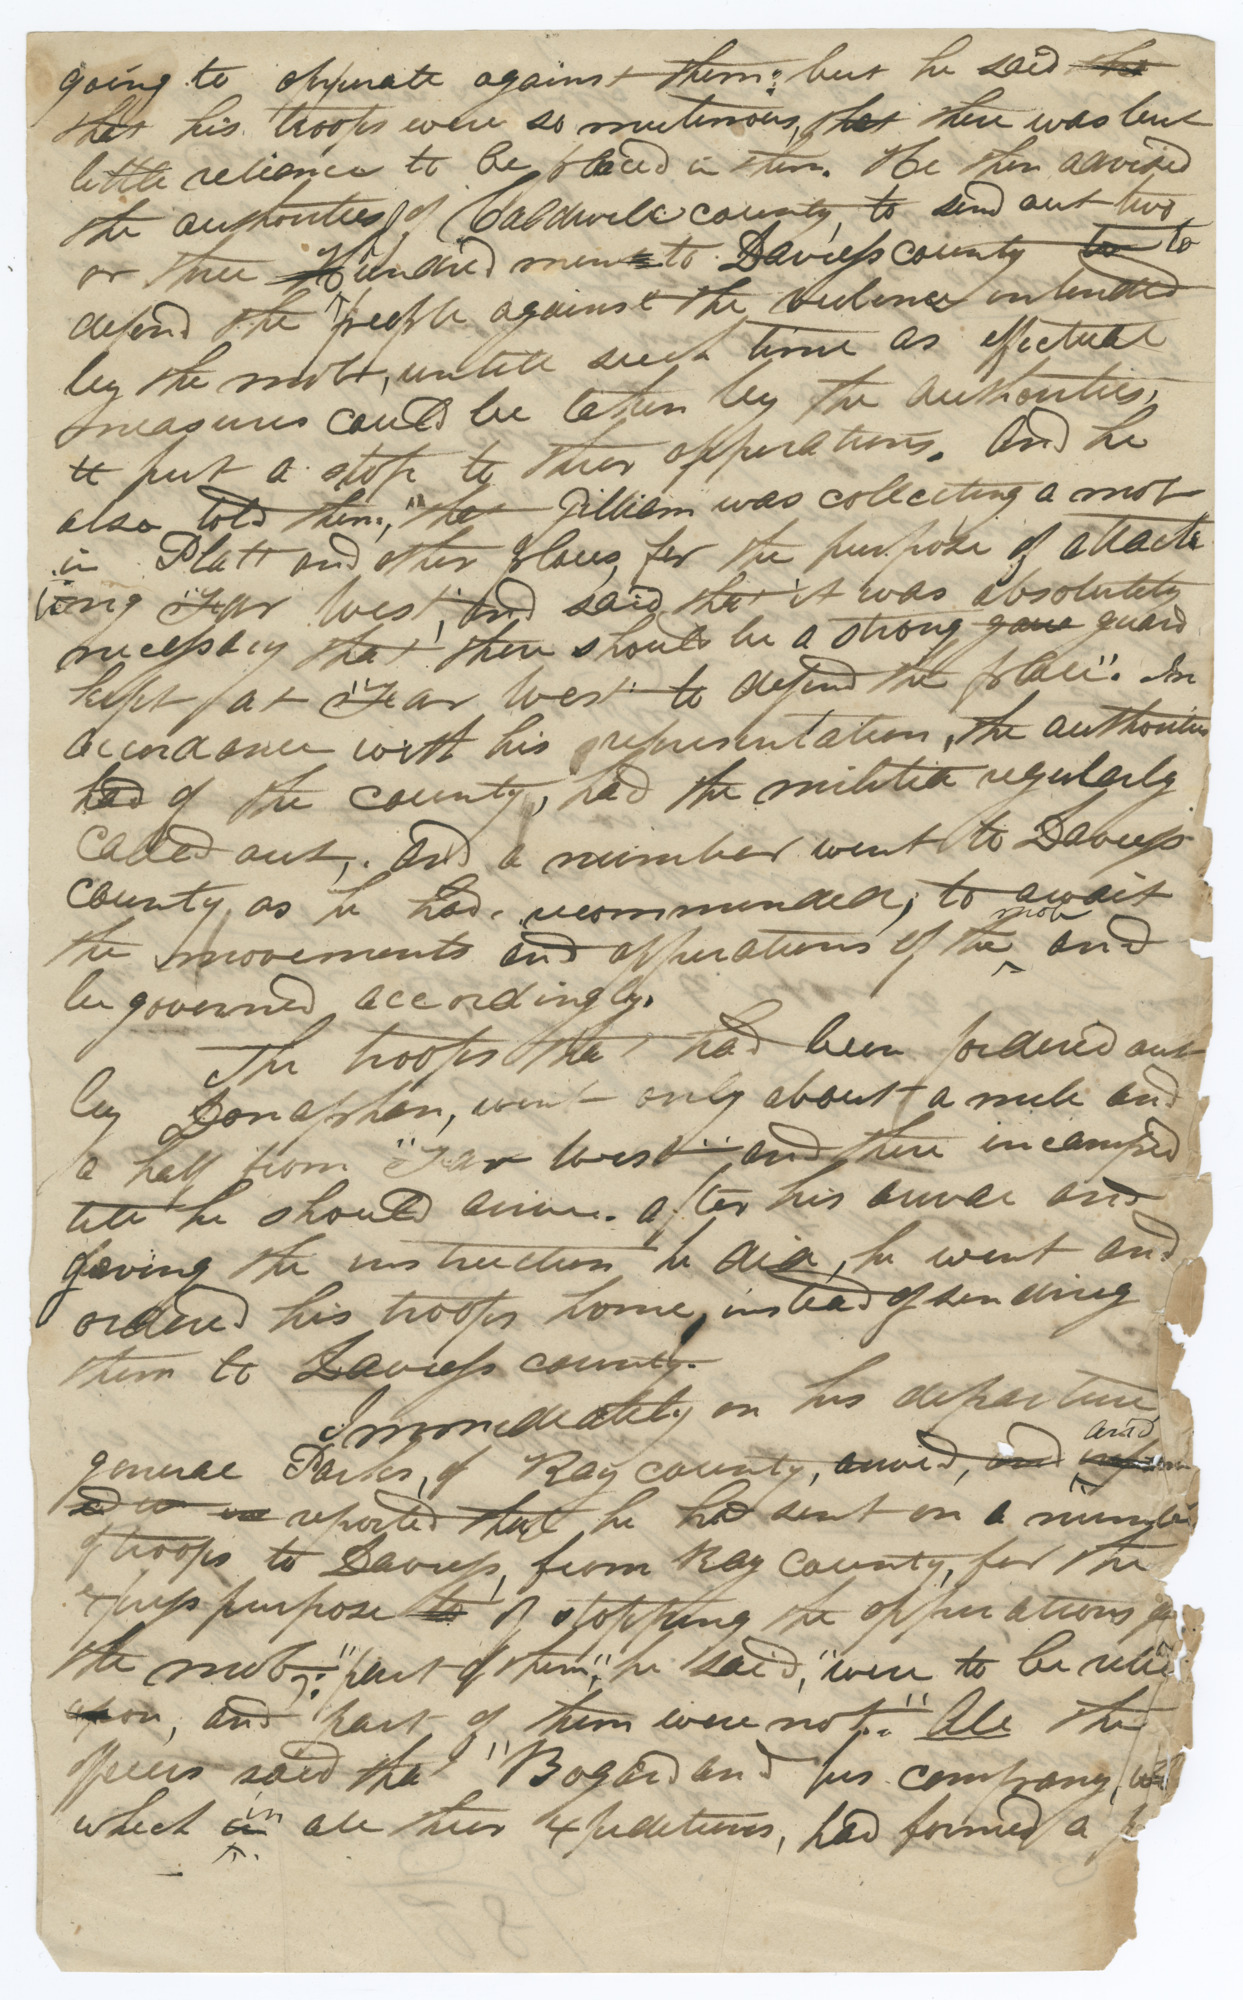 going to opperate against them: but he said the
that his troops were so mutinous, that there was but
little reliance to be placed in them. He then advised
the authorities, of Caldwell county, to send out two
or three Hundred men to Daviess county to to
defend the people against the violence intended
by the mob, untill such time as effectual
measures could be taken by the authorities,
to put a stop to their opperations. And he
also told them, "that Gilliam was collecting a mob
in Platt and other places, for the purpose of attack
ing "Far West", and said that it was absolutely
necessary that there should be a strong gaue guard
kept at "Far West" to defend the place". In
accordance with his representation, the authorities
had of the county, had the militia regularly
called out, and a number went to Daviess
county, as he had recommended, to await
the movements and opperations of the mob and
be governed accordingly.
The troops that had been ordered out
by Donaphan, went only about a mile and
a half from "Far West" and there incamped
till he should arive. after his arival and
giveing the instruction he did, he went and
ordered his troops home, instead of sending
them to Daviess county.
Immediately on his departure
general Parks, of Ray county, arived, and and inform
ed us reported that he had sent on a number
of troops to Daviess, from Ray county, for the
express purpose to of stopping the opperations of
the mob,: "part of them", he said, "were to be relie
upon, and part of them were not." All the
officers said that "Bogard and his company,
which in in all their expeditions, had formed a